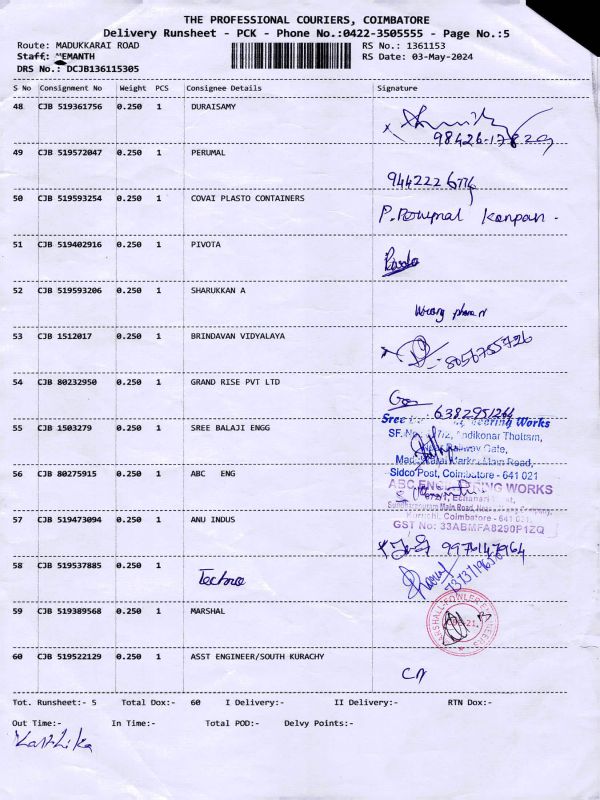 THE PROFESSIONAL COURIERS, COIMBATORE
Delivery Runsheet - PCK - Phone No.:0422-3505555 - Page No.:5
Route: MADUKKARAI ROAD RS No.: 1361153
Staff: HEMANTH RS Date: 03-May-2024
DRS No.: DCJB136115305
S No Consignment No Weight PCS Consignee Details Signature
48 CJB 519361756 0.250 1 DURAISAMY
98426-17829
49 CJB 519572047 0.250 1 PERUMAL
50 CJB 519593254 0.250 1 COVAI PLASTO CONTAINERS
51 CJB 519402916 0.250 1 PIVOTA
52 CJB 519593206 0.250 1 SHARUKKAN A
Wrong phone n
53 CJB 1512017 0.250 1 BRINDAVAN VIDYALAYA
8056755726
54 CJB 80232950 0.250 1 GRAND RISE PVT LTD
6382951264
55 CJB 1503279 0.250 1 SREE BALAJI ENGG
Sree Engineering Works
Andikonar Thottam,
Railway Gate,
Main Road,
Sidco Post, Coimbatore - 641 021
56 CJB 80275915 0.250 1 ABC ENG
ABC ENGINEERING WORKS
Kuruchi, Coimbatore - 641 021.
GST No: 33ABMFA8290P1ZQ
57 CJB 519473094 0.250 1 ANU INDUS
9976147964
58 CJB 519537885 0.250 1 Techno
59 CJB 519389568 0.250 1 MARSHAL
MARSHALL-FOWLER ENGINEERS
60 CJB 519522129 0.250 1 ASST ENGINEER/SOUTH KURACHY
Tot. Runsheet:- 5 Total Dox:- 60 I Delivery:- II Delivery:- RTN Dox:-
Out Time:- In Time:- Total POD:- Delvy Points:-